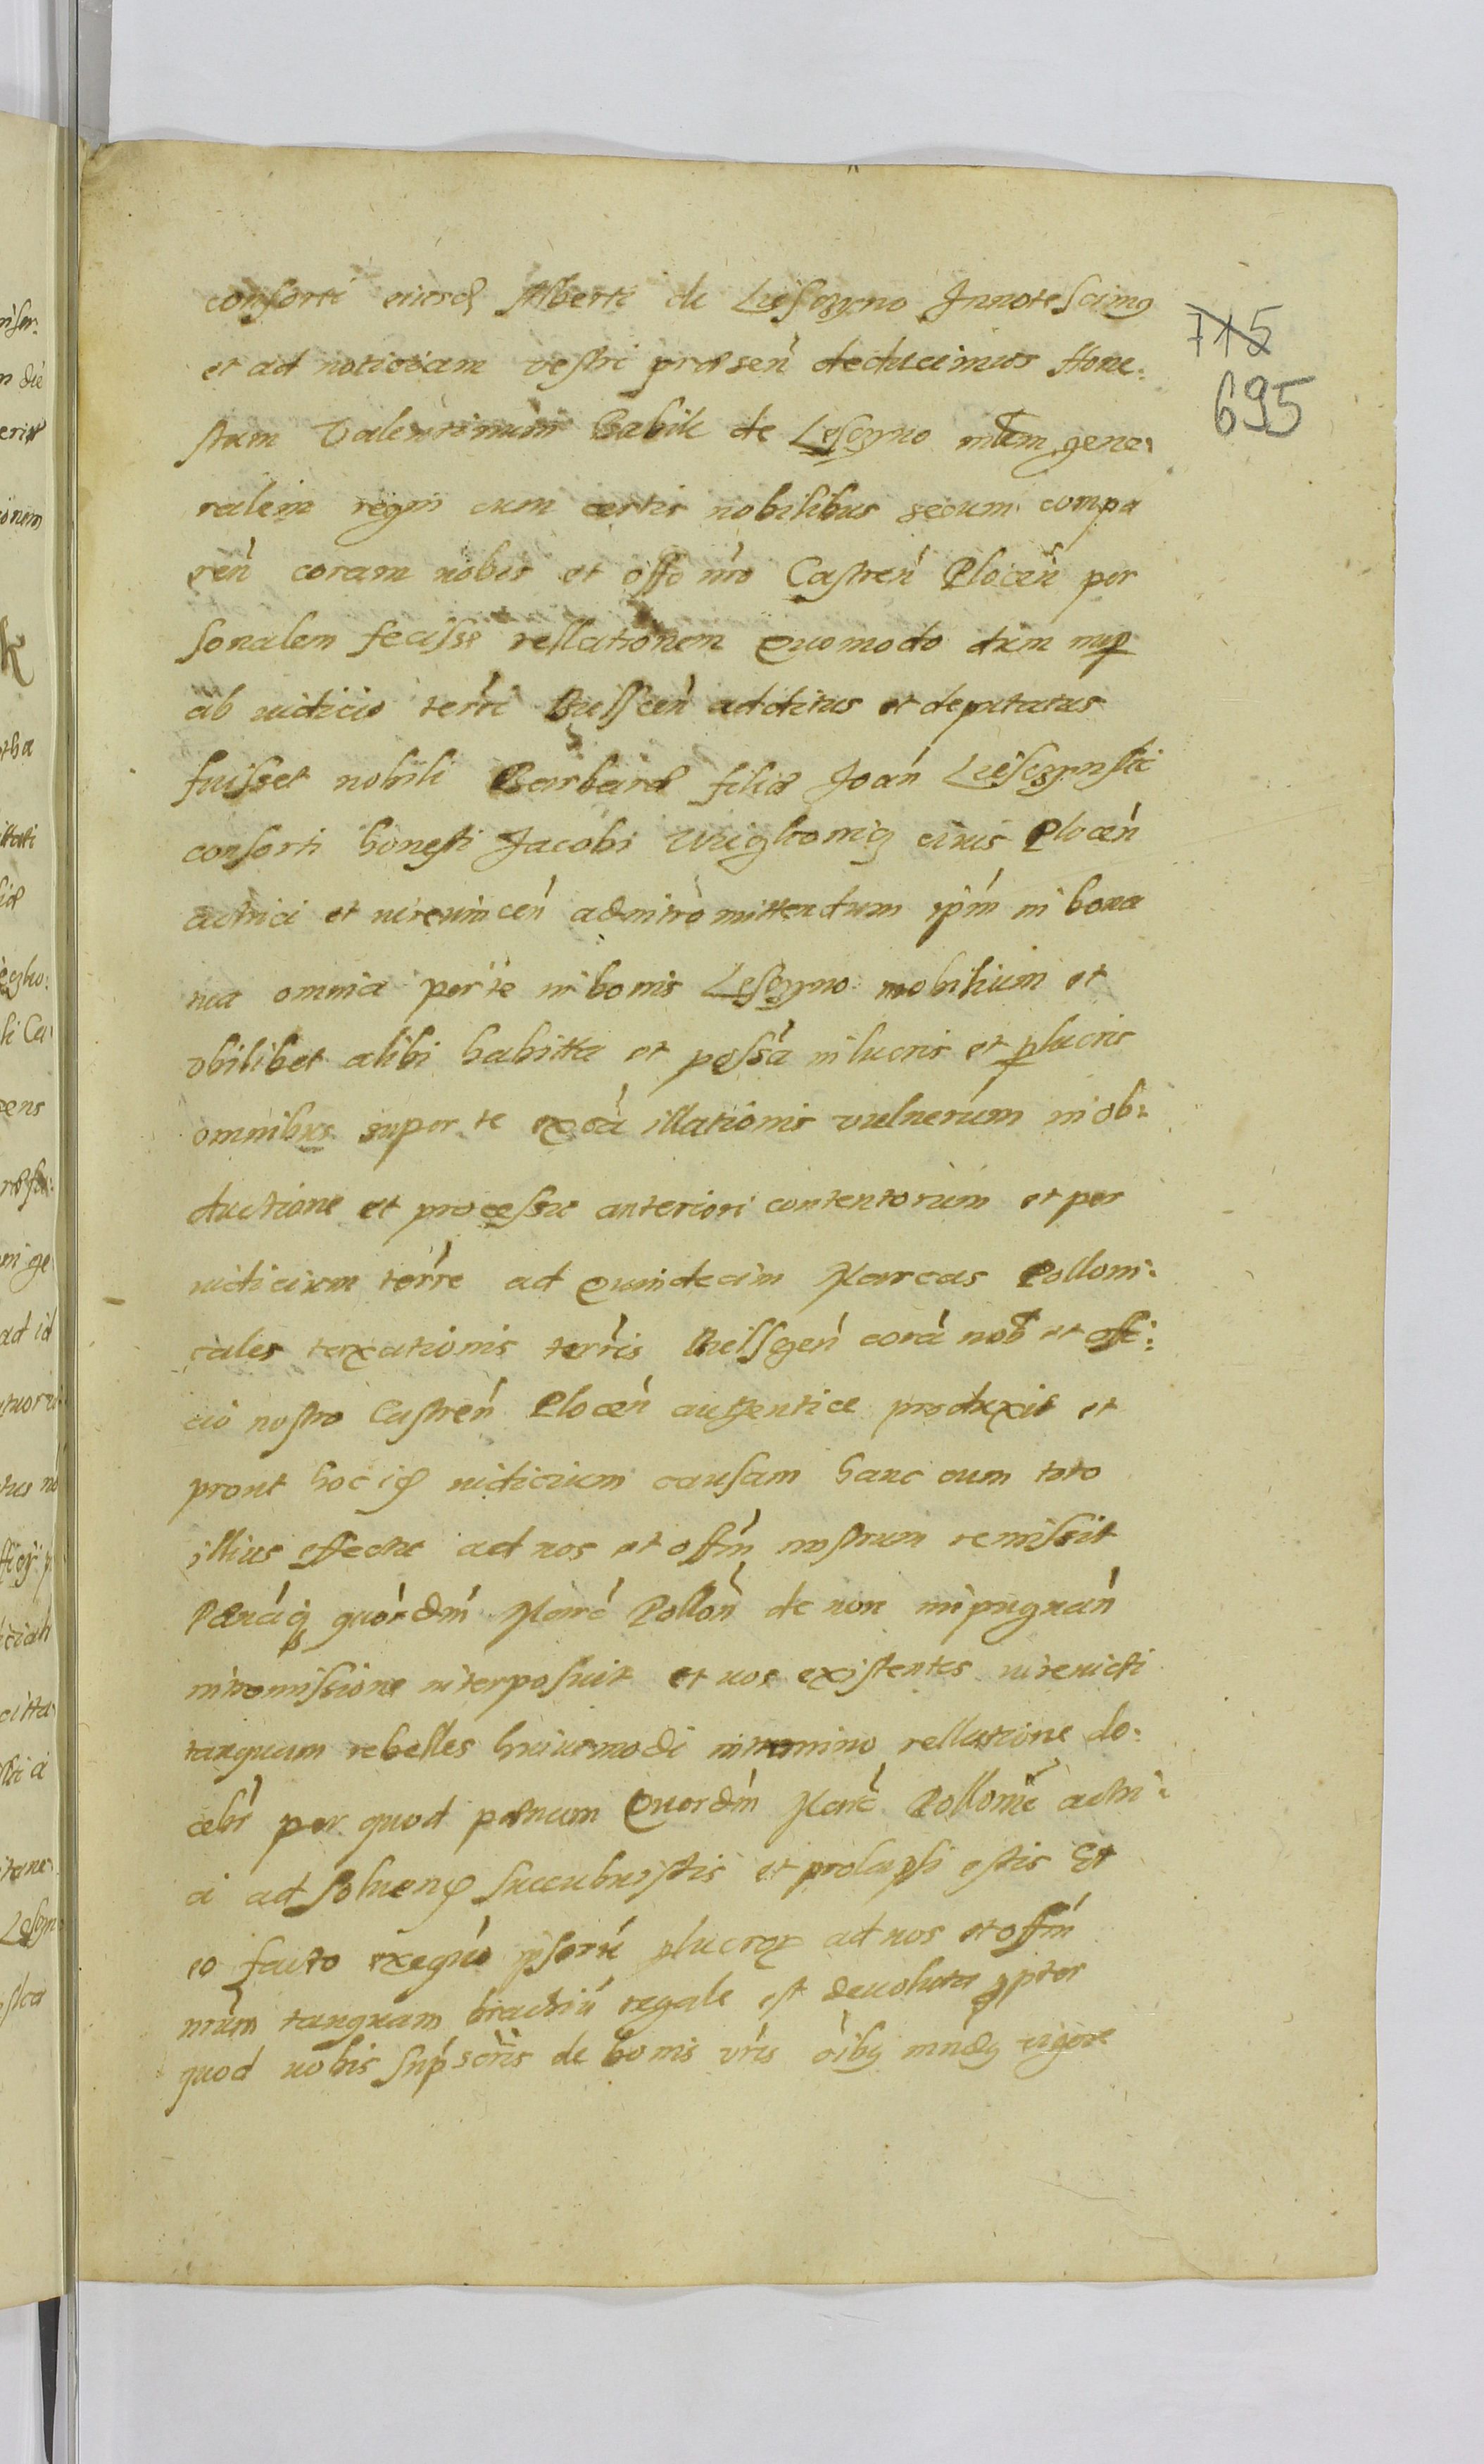 consorti eiusd Alberti de Lesczyno Innotescimq
et ad notitiam vestri præsen deducimus Hone:
stum Valentinum Babik de Lesczyno mtem gene:
ralem regni cum certis nobilibus secum compa
ren coram nobis et offo nro Castren Plocen per
sonalem fecisse rellationem Quomodo dum nup
ab iudicio terri Bielscen additus et deputatus
fuisset nobili Barbaræ filiæ Joan Liesczynski
consorti honesti Jacobi civis Plocen
actrici et in re vincen ad intromittendum ipm in bona
tua omnia per te in bonis Lesczyno mobilium et
vbilibet alibi habitta et possa in lucris et plucris
omnibus super te ex ca illationis vulnerum in ob:
ductione et processu anteriori contentorum et per
iudicium terre ad Quindecim Marcas Polloni:
cales taxationis terris Bielscen cora nob et offi:
cio nostro Castren Plocen autentice produxit et
prout hoc id iudicium causam hanc cum toto
illius effectu ad nos et offm nostrum remissit
Pænaq quordm Marc Pollon de non impugnan
intromissione interposuit et vos existentes in re victi
tanquam rebelles huiusmodi rellatione do:
cebr per quod pænam Quordm Marc Pollonic actri:
ci ad soluend succubuistis et prolapsi estis Et
eo facto exequio ipsoru plucror ad nos et offm
nrum tanquam brachiu regale est deuoluta propter
quod vobis supscris de bonis vris oibq mndq vigore
715
695